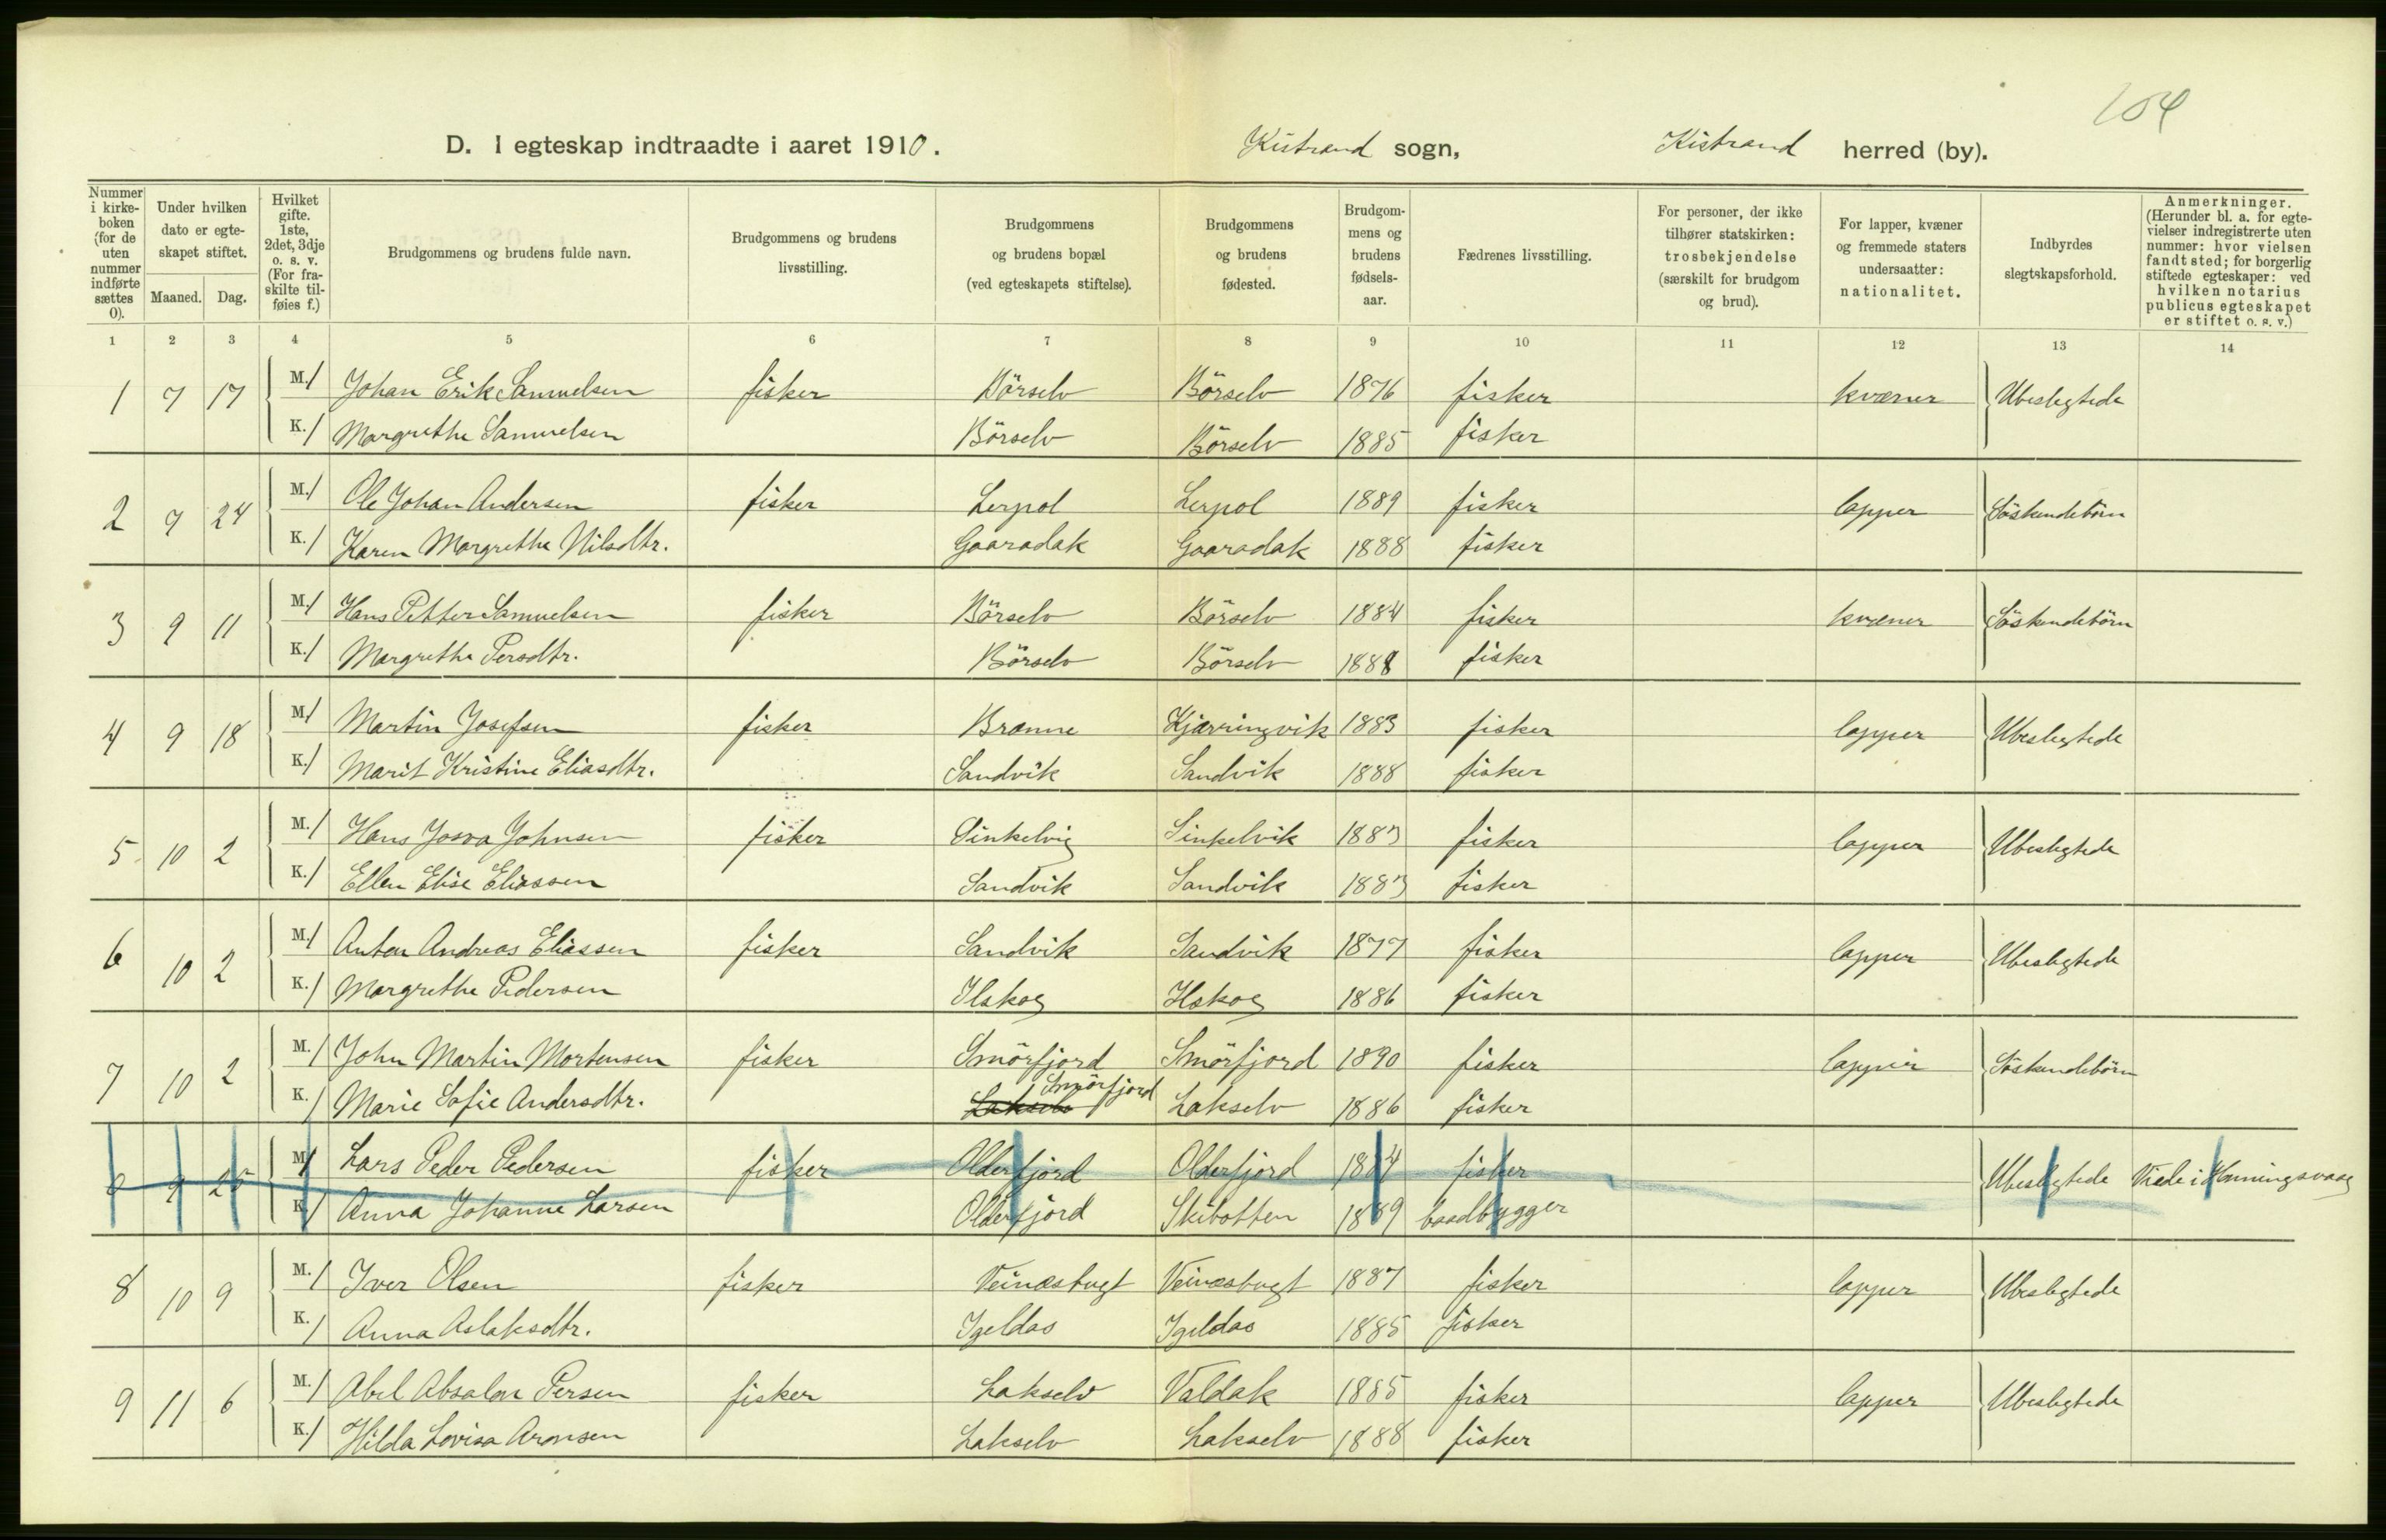 104
D. I egteskap indtraadte i aaret 1910. Kistrand sogn, Kistrand herred (by).
Nummer i kirke- boken (for de uten nummer indførte sættes 0). Under hvilken dato er egte- skapet stiftet. Maaned. Dag. Hvilket gifte. 1ste, 2det, 3dje o. s. v. (For fra- skilte til- føies f.) Brudgommens og brudens fulde navn. Brudgommens og brudens livsstilling. Brudgommens og brudens bopæl (ved egteskapets stiftelse). Brudgommens og brudens fødested. Brudgom- mens og brudens fødsels- aar. Fædrenes livsstilling. For personer, der ikke tilhører statskirken: trosbekjendelse (særskilt for brudgom og brud). For lapper, kvæner og fremmede staters undersaatter: nationalitet. Indbyrdes slegtskapsforhold. Anmerkninger. (Herunder bl. a. for egte- vielser indregistrerte uten nummer: hvor vielsen fandt sted; for borgerlig stiftede egteskaper: ved hvilken notarius publicus egteskapet er stiftet o. s. v.)
1 2 3 4 5 6 7 8 9 10 11 12 13 14
1 7 17 M. 1 Johan Erik Samuelsen fisker Börselv Börselv 1876 fisker kvæner Ubeslegtede
K. 1 Margrethe Samuelsen Börselv Börselv 1885 fisker
2 9 24 M. 1 Ole Johan Andersen fisker Lerpol Lerpol 1889 fisker lapper Söskendebörn
K. 1 Karen Margrethe Nilsdtr. Gaaradak Gaaradak 1888 fisker
3 9 11 M. 1 Hans Petter Samuelsen fisker Börselv Börselv 1884 fisker kvæner Söskendebörn
K. 1 Margrethe Persdtr. Börselv Börselv 1888 fisker
4 9 18 M. 1 Martin Josefsen fisker Brænne Kjærringvik 1883 fisker lapper Ubeslegtede
K. 1 Marit Kristine Eliasdtr. Sandvik Sandvik 1888 fisker
5 10 2 M. 1 Hans Josva Johnsen fisker Sinkelvig Sinkelvik 1883 fisker lapper Ubeslegtede
K. 1 Ellen Elise Eliassen Sandvik Sandvik 1883 fisker
6 10 2 M. 1 Anton Andreas Eliassen fisker Sandvik Sandvik 1877 fisker lapper Ubeslegtede
K. 1 Margrethe Pedersen Ilskog Ilskog 1886 fisker
7 10 2 M. 1 John Martin Mortensen fisker Smörfjord Smörfjord 1890 fisker lapper Söskendebörn
K. 1 Marie Sofie Andersdtr. Lakselv Smörfjord Lakselv 1886 fisker
0 9 25 M. 1 Lars Peder Pedersen fisker Olderfjord Olderfjord 1884 fisker Ubeslegtede Viede i Honningsvaag
K. 1 Anna Johanne Larsen Olderfjord Skibotten 1889 baadbygger
8 10 9 M. 1 Iver Olsen fisker Veinæsbugt Veinæsbugt 1887 fisker lapper Ubeslegtede
K. 1 Anna Aslaksdtr. Igeldas Igeldas 1885 fisker
9 11 6 M. 1 Abel Absalon Persen fisker Lakselv Valdak 1885 fisker lapper Ubeslegtede
K. 1 Hilda Lovisa Aronsen Lakselv Lakselv 1888 fisker